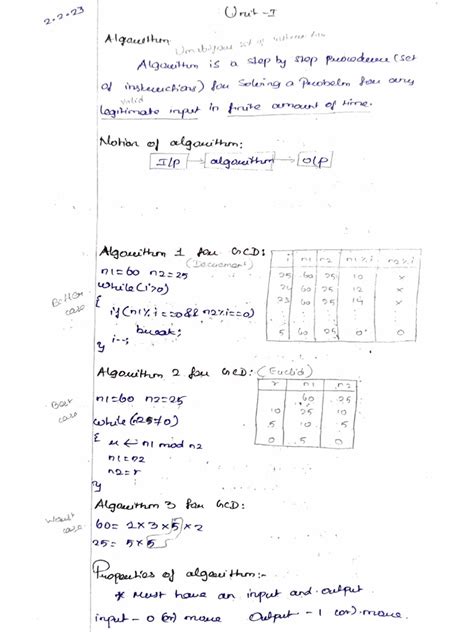 2.2.23
Unit-I
Algorithm
Unambiguous set of instruction
Algorithm is a step by step procedure (set
of instructions) for solving a Probelm for any
valid
legitimate input in finite amount of time.
Notion of algorithm:
I/p → algorithm → O/p
Algorithm 1 for GCD:
(Decrement)
n1=60 n2=25
while(i>0)
{
if(n1%i==0&& n2%i==0)
break;
i--;
}
Better
case
i n1 n2 n1%i n2%i
25 60 25 10 x
24 60 25 12 x
23 60 25 14 x
5 60 25 0 0
Algorithm 2 for GCD: (Euclid)
n1=60 n2=25
while(n2≠0)
{ r ← n1 mod n2
n1=n2
n2=r
}
Best
case
r n1 n2
60 25
10 25 10
5 10 5
0 5 0
Algorithm 3 for GCD:
60= 2×3×5×2
25= 5×5
Worst
case
Properties of algorithm:-
* Must have an input and output
input - 0 (or) more Output - 1 (or) more.